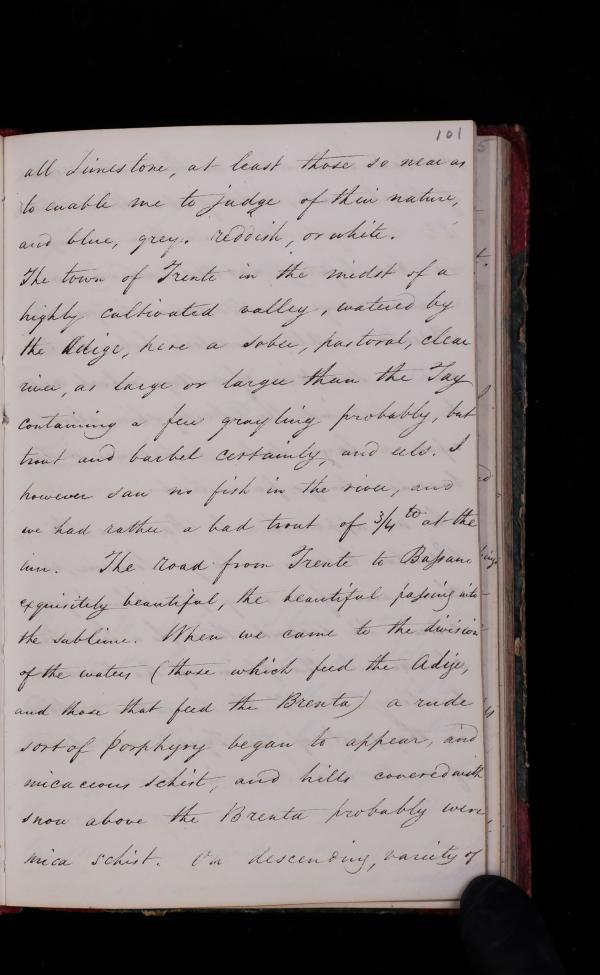 101
all Limestone, at least those so near as
to enable me to judge of their nature,
and blue, grey. reddish, or white.
The town of Trente in the midst of a
highly cultivated valley, watered by
the Adige, here a sober, pastoral, clear
river, as large or larger than the Tay
containing a few grayling probably, but
trout and barbel certainly, and eels. I
however saw no fish in the river, and
we had rather a bad trout of 3/4 at the
inn. The road from Trente to Bassano
exquisitely beautiful, the beautiful passing into
the sublime. When we came to the division
of the waters (those which feed the Adige,
and those that feed the Brenta) a rude
sort of Porphyry began to appear, and
micaceous schist, and hills covered with
snow above the Brenta probably were
mica schist. On descending, variety of